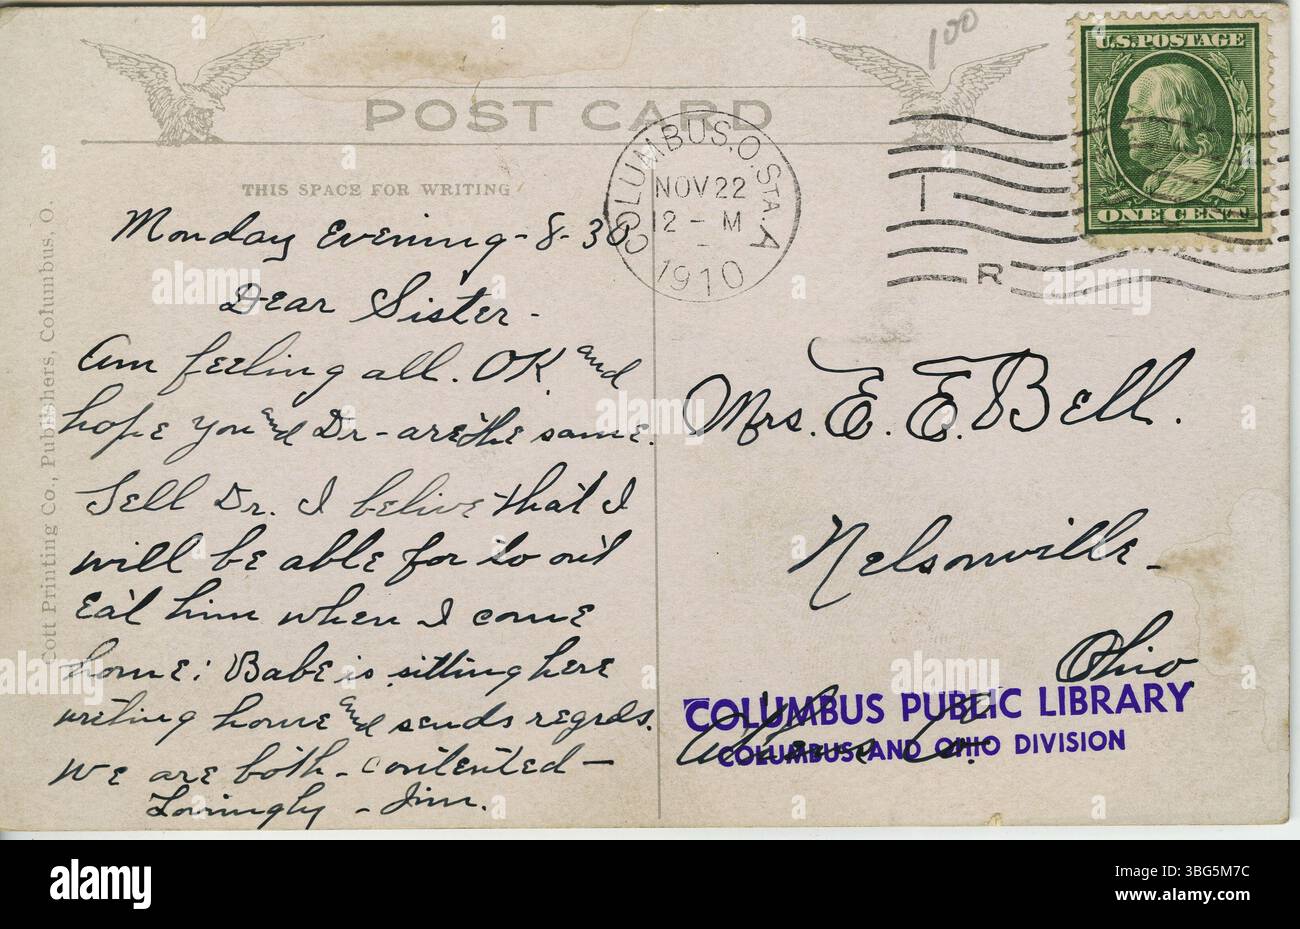 100
U.S. POSTAGE
POST CARD
THIS SPACE FOR WRITING
COLUMBUS, O. STA. A
NOV 22
12 - M
1910
I
R
ONE CENT
Monday Evening - 8-30
Dear Sister -
Am feeling all. OK. and
hope you and Dr - are the same.
Tell Dr. I belive that I
will be able for to out
eat him when I come
home: Babe is sitting here
writing home and sends regrds.
We are both - contented -
Lovingly - Jim.
Mrs. E. E. Bell.
Nelsonville -
Ohio
Athens Co.
COLUMBUS PUBLIC LIBRARY
COLUMBUS AND OHIO DIVISION
Cott Printing Co., Publishers, Columbus, O.
alamy
Image ID: 3BG5M7C
www.alamy.com